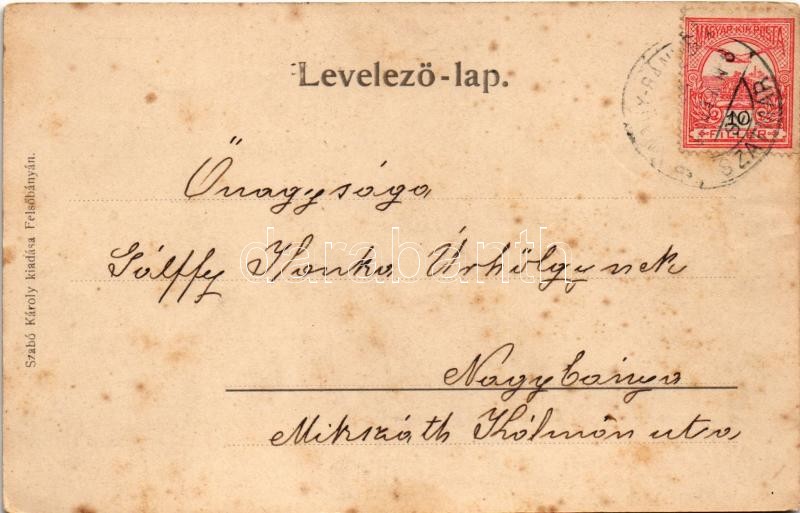 Levelező-lap.
MAGYAR·KIR·POSTA
10
FILLÉR
Önagysága
Pálffy Ilonka Úrhölgynek
Nagybánya
Mikszáth Kálmán utca
Szabó Károly kiadása Felsőbányán.
darabanth.com